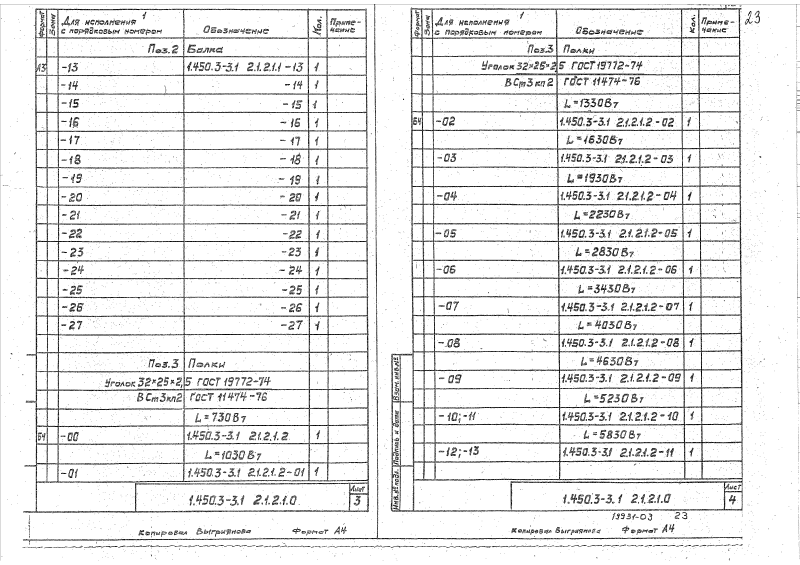 23
Формат
Зона
Для исполнения 1
с порядковым номером
Обозначение
Кол.
Приме-
чание
Поз.2 Балка
А3 -13 1.450.3-3.1 2.1.2.1.1-13 1
-14 -14 1
-15 -15 1
-16 -16 1
-17 -17 1
-18 -18 1
-19 -19 1
-20 -20 1
-21 -21 1
-22 -22 1
-23 -23 1
-24 -24 1
-25 -25 1
-26 -26 1
-27 -27 1
Поз.3 Полки
Уголок 32×25×2,5 ГОСТ 19772-74
ВСт3кп2 ГОСТ 11474-76
L=730Вт
БЧ -00 1.450.3-3.1 2.1.2.1.2 1
L=1030Вт
-01 1.450.3-3.1 2.1.2.1.2-01 1
1.450.3-3.1 2.1.2.1.0
Лист
3
Копировал Выгриянова Формат А4
Формат
Зона
Для исполнения 1
с порядковым номером
Обозначение
Кол.
Приме-
чание
Поз.3 Полки
Уголок 32×25×2,5 ГОСТ 19772-74
ВСт3кп2 ГОСТ 11474-76
L=1330Вт
БЧ -02 1.450.3-3.1 2.1.2.1.2-02 1
L=1630Вт
-03 1.450.3-3.1 2.1.2.1.2-03 1
L=1930Вт
-04 1.450.3-3.1 2.1.2.1.2-04 1
L=2230Вт
-05 1.450.3-3.1 2.1.2.1.2-05 1
L=2830Вт
-06 1.450.3-3.1 2.1.2.1.2-06 1
L=3430Вт
-07 1.450.3-3.1 2.1.2.1.2-07 1
L=4030Вт
-08 1.450.3-3.1 2.1.2.1.2-08 1
L=4630Вт
-09 1.450.3-3.1 2.1.2.1.2-09 1
L=5230Вт
-10;-11 1.450.3-3.1 2.1.2.1.2-10 1
L=5830Вт
-12;-13 1.450.3-3.1 2.1.2.1.2-11 1
Инв.№подл. Подпись и дата Взам.инв.№
1.450.3-3.1 2.1.2.1.0
Лист
4
19991-03 23
Копировал Выгриянова Формат А4